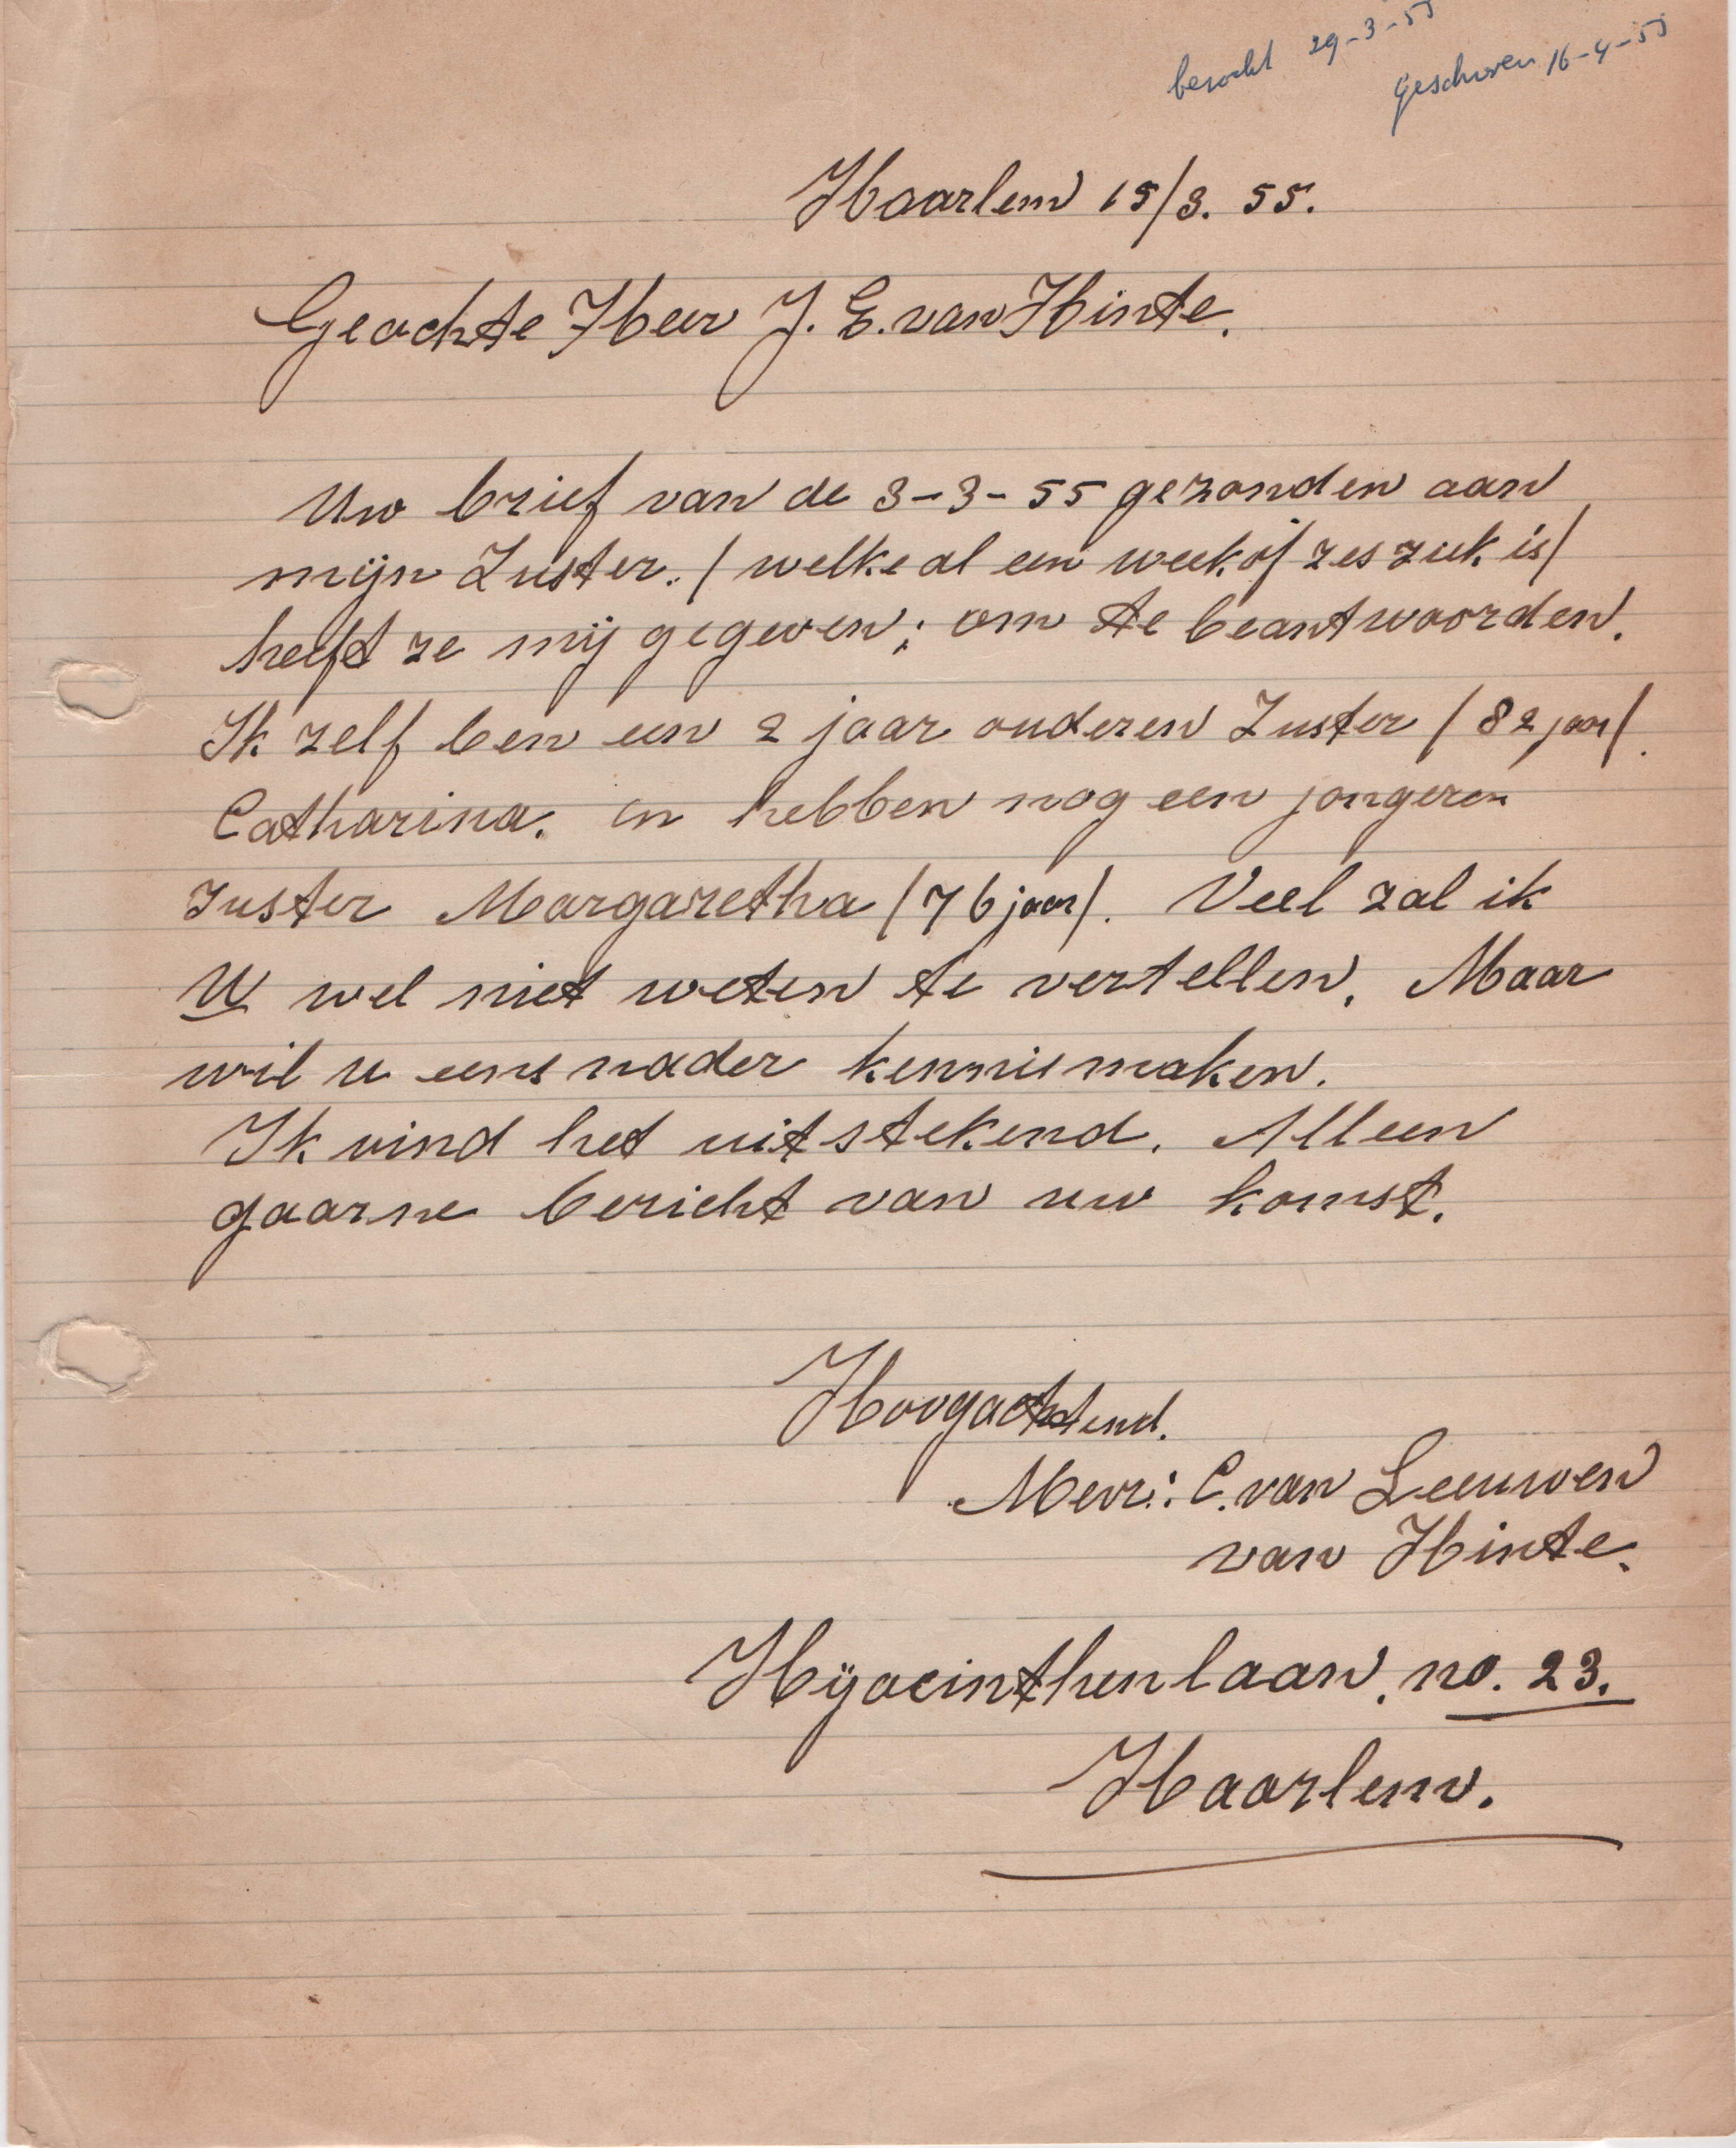 bezocht 29-3-55
geschreven 16-4-55
Haarlem 15/3. 55.
Geachte Heer J. E. van Hinte.
Uw brief van de 3-3-55 gezonden aan
mijn Zuster. / welke al een week of zes ziek is /
heeft ze mij gegeven; om te beantwoorden.
Ik zelf ben een 2 jaar ouderen Zuster / 82 jaar /.
Catharina. en hebben nog een jongeren
zuster Margaretha / 76 jaar /. Veel zal ik
U wel niet weten te vertellen. Maar
wil u eens nader kennismaken.
Ik vind het uitstekend. Alleen
gaarne bericht van uw komst.
Hoogachtend.
Mevr: C. van Leeuwen
van Hinte.
Hÿacinthenlaan. no. 23.
Haarlem.